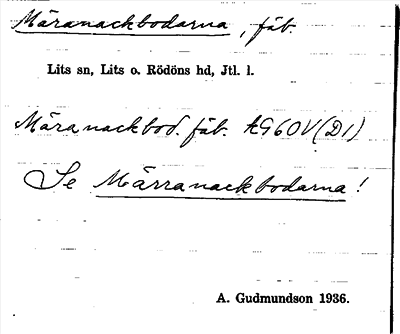 Märanackbodarna, fäb.
Lits sn, Lits o. Rödöns hd, Jtl. l.
Märanackbod. fäb. k960V(D1)
Se Märranackbodarna!
A. Gudmundson 1936.